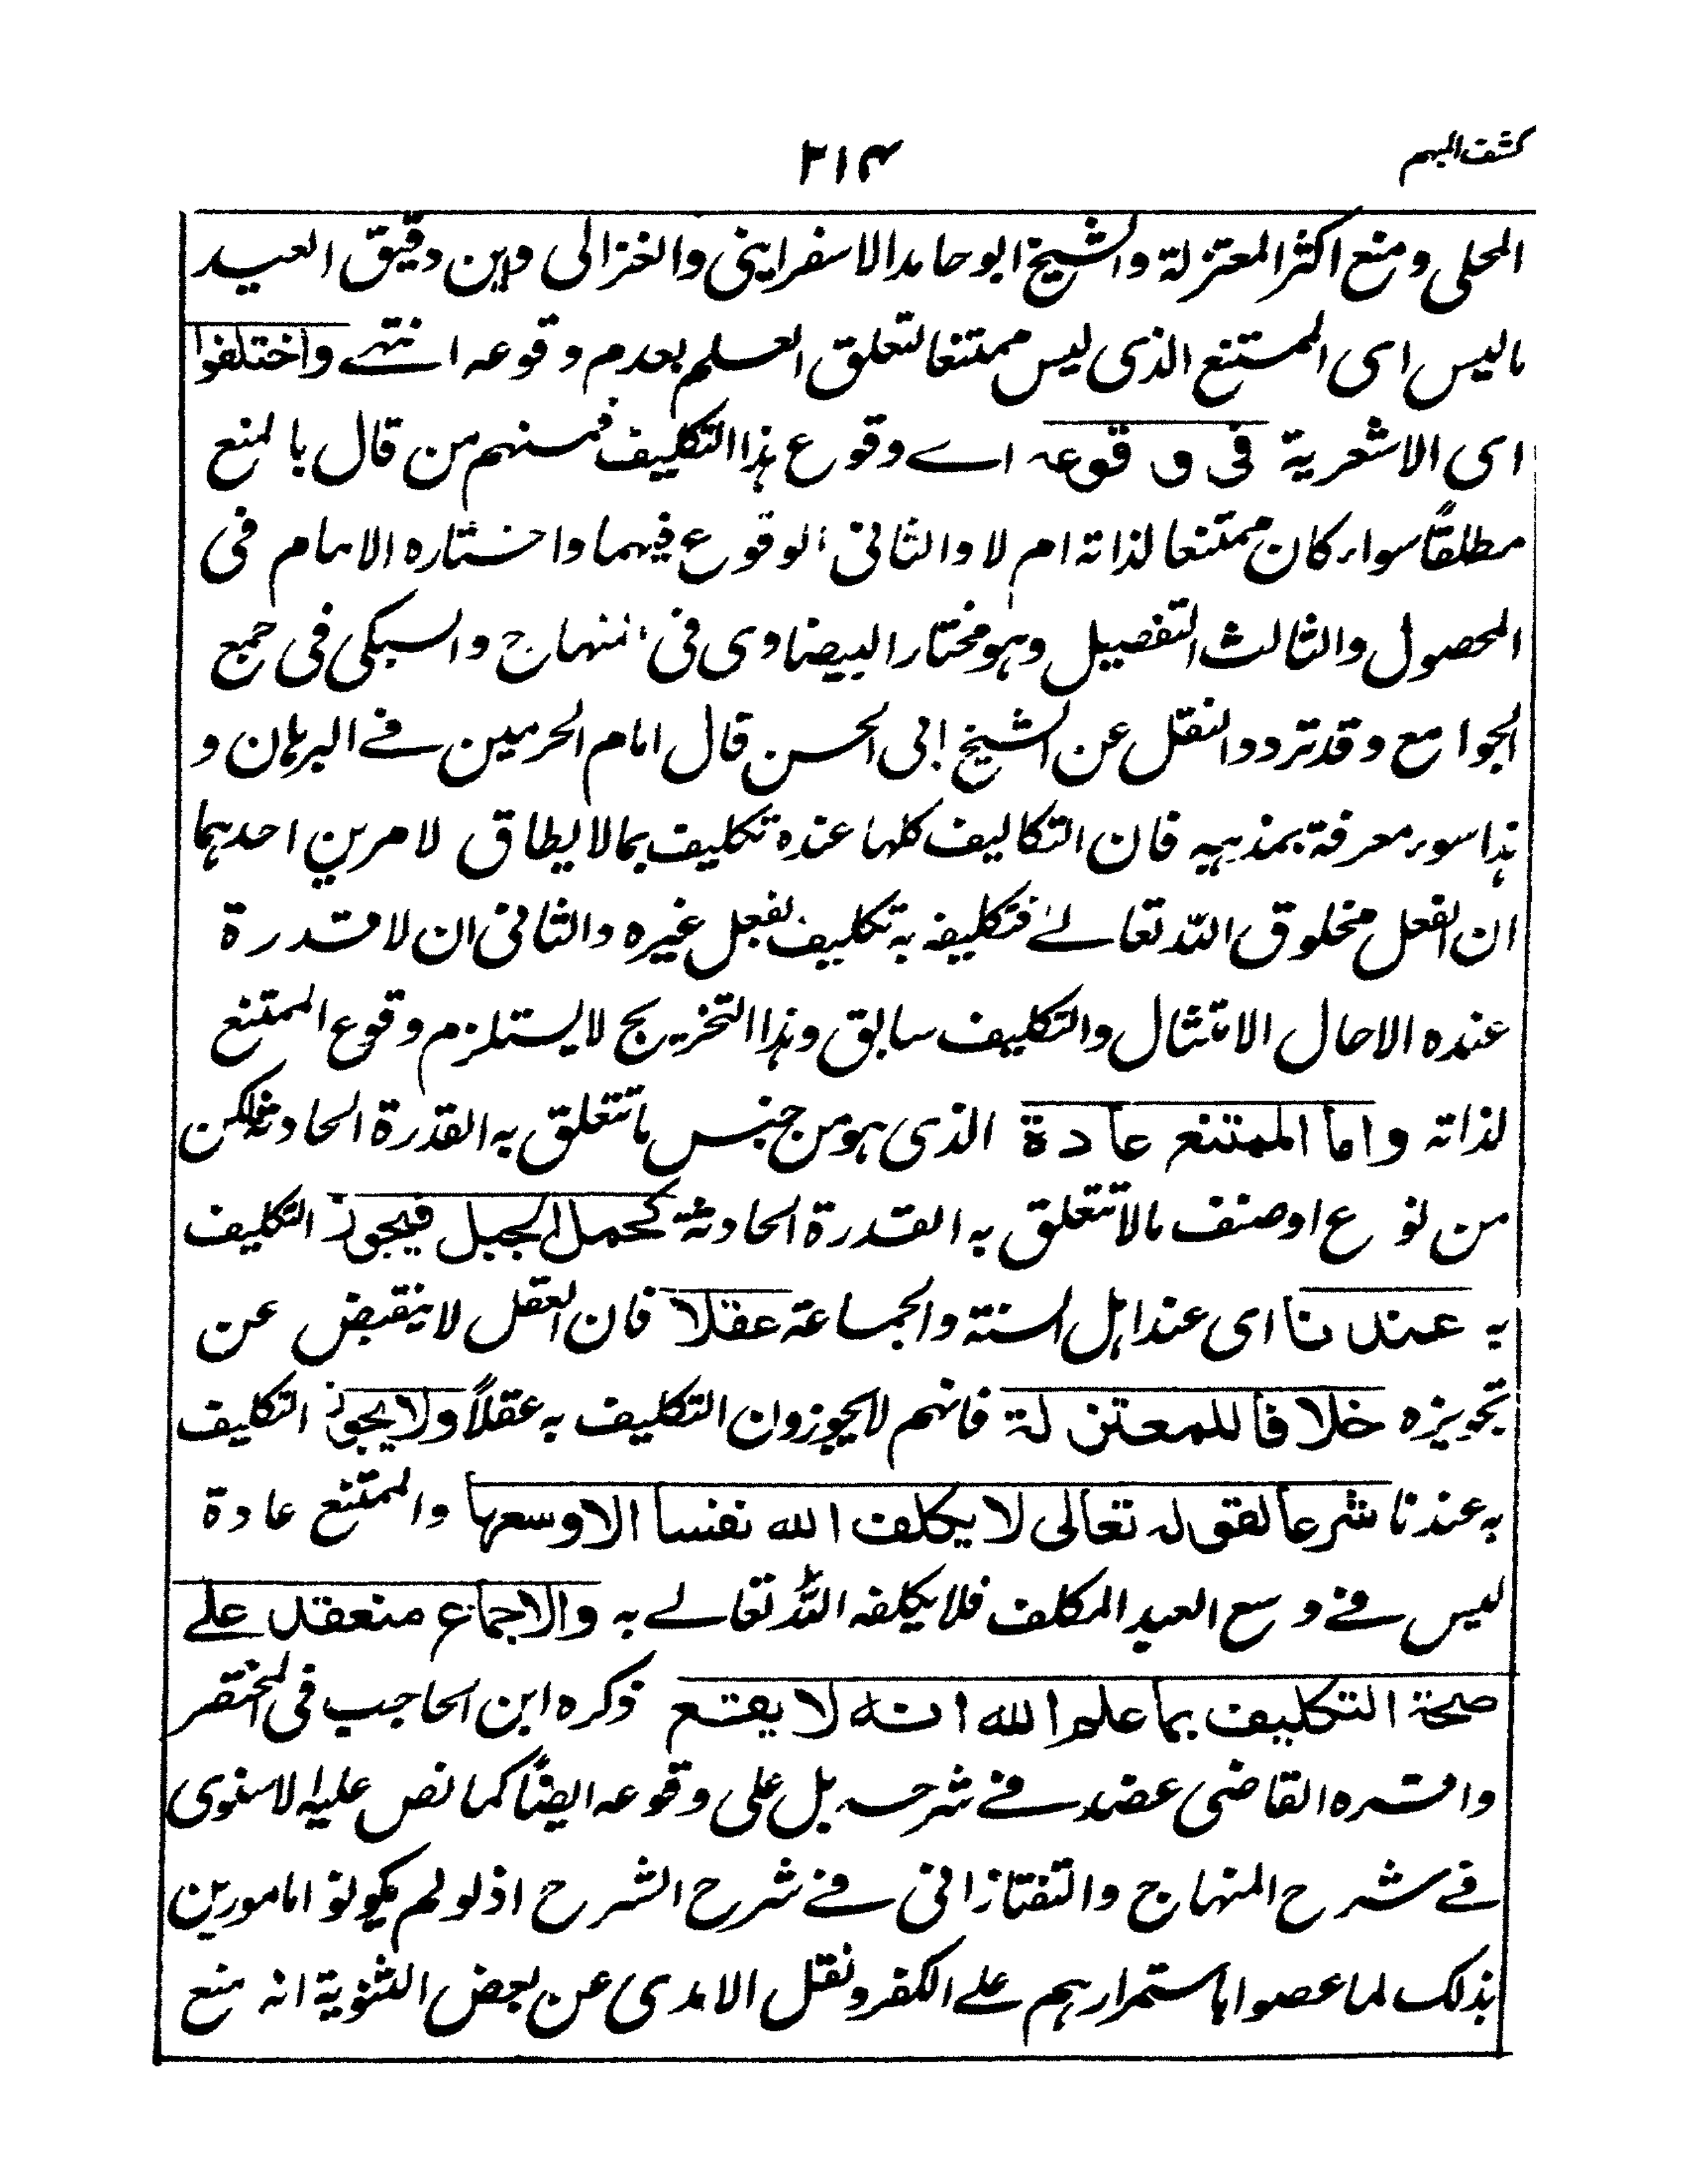 كشف المبهم
٢١٤
المحلى ومنع اكثر المعتزلة والشيخ ابو حامد الاسفراينى والغزالى وابن دقيق العيد
ماليس اى الممتنع الذى ليس ممتنعا لتعلق العلم بعدم وقوعه انتهے واختلفوا
اى الاشعرية فى وقوعه اے وقوع هذا التكليف فمنهم من قال بالمنع
مطلقًا سواء كان ممتنعا لذاته ام لا والثانى الوقوع فيهما واختاره الامام فى
المحصول والثالث التفصيل وهو مختار البيضاوى فى المنهاج والسبكى فى جمع
الجوامع وقد تردد النقل عن الشيخ ابى الحسن قال امام الحرمين فے البرهان و
هذا سوء معرفة بمذهبه فان التكاليف كلها عنده تكليف بمالايطاق لامرين احدهما
ان الفعل مخلوق الله تعالےٰ فتكليفه به تكليف بفعل غيره والثانى ان لا قدرة
عنده الاحال الامتثال والتكليف سابق وهذا التخريج لا يستلزم وقوع الممتنع
لذاته واما الممتنع عادة الذى هو من جنس ما تتعلق به القدرة الحادثة لكن
من نوع او صنف مالا تتعلق به القدرة الحادثة كحمل الجبل فيجوز التكليف
به عندنا اى عند اهل السنة والجماعة عقلا فان العقل لا ينقبض عن
تجويزه خلافا للمعتزلة فانهم لايجوزون التكليف به عقلاً ولا يجوز التكليف
به عندنا شرعا لقوله تعالى لا يكلف الله نفسا الا وسعها والممتنع عادة
ليس فے وسع العبد المكلف فلا يكلفه الله تعالے به والاجماع منعقد علے
صحة التكليف بما علم الله انه لا يقع ذكره ابن الحاجب فى المختصر
واقره القاضى عضد فے شرحه بل على وقوعه ايضًا كما نص عليه الاسنوى
فے شرح المنهاج والتفتازانى فے شرح الشرح اذ لو لم يكونوا مامورين
بذلك لما عصوا باستمرارهم علے الكفر ونقل الامدى عن بعض الثنوية انه منع